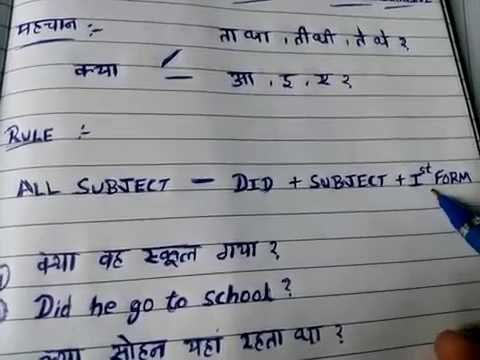 पहचान :- ता था, ती थी, ते थे ?
क्या आ, इ, ए ?
RULE :-
ALL SUBJECT — DID + SUBJECT + Ist FORM
क्या वह स्कूल गया ?
Did he go to school ?
क्या सोहन यहां रहता था ?